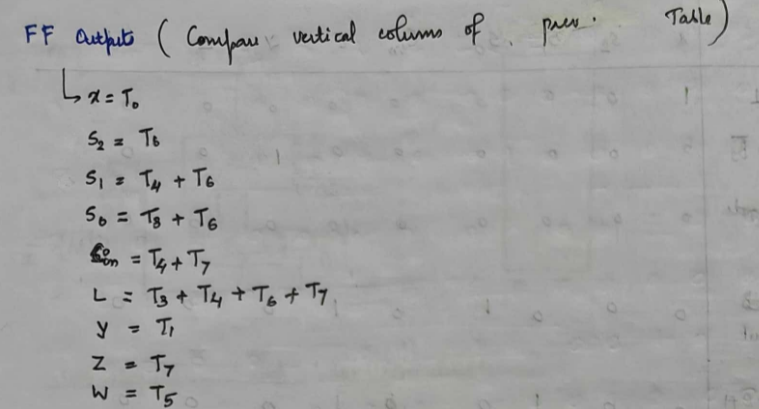 FF Outputs ( Compare vertical columns of prev. Table )
↳ x = T₀
S₂ = T₆
S₁ = T₄ + T₆
S₀ = T₃ + T₆
Cin = T₄ + T₇
L = T₃ + T₄ + T₆ + T₇
y = T₁
Z = T₇
W = T₅